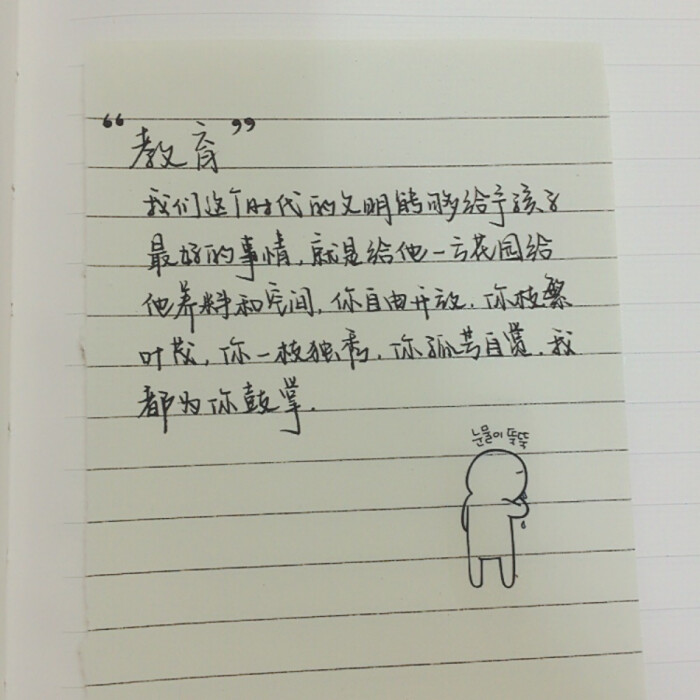 “教育”
我们这个时代的文明能够给予孩子
最好的事情,就是给他一方花园给
他养料和空间,你自由开放.你枝繁
叶茂,你一枝独秀,你孤芳自赏.我
都为你鼓掌.
눈물이 뚝뚝